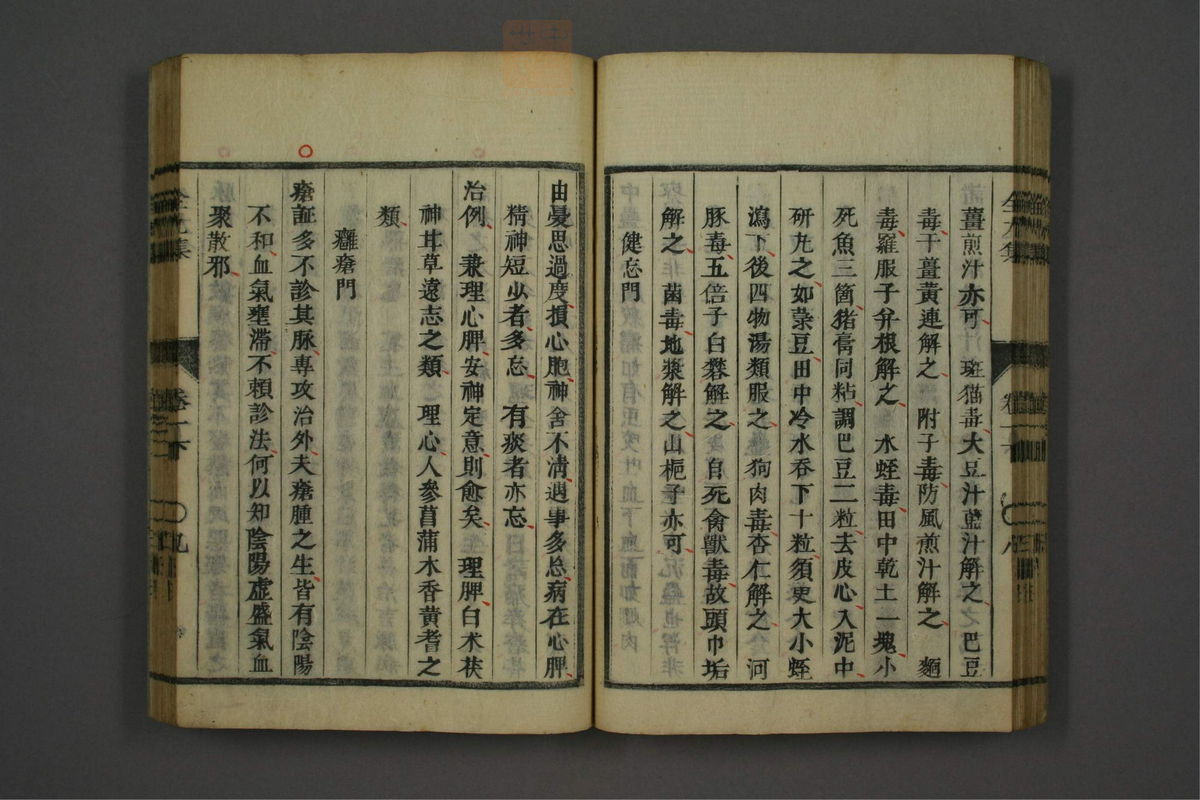 薑煎汁亦可 斑猫毒大豆汁藍汁解之 巴豆
毒干薑黄連解之 附子毒防風煎汁解之 麵
毒羅服子并根解之 水蛭毒田中乾土一塊小
死魚三箇猪膏同粘調巴豆二粒去皮心入泥中
研丸之如菉豆田中冷水吞下十粒須臾大小蛭
瀉下後四物湯類服之 狗肉毒杏仁解之 河
豚毒五倍子白礬解之 自死禽獸毒故頭巾垢
解之 菌毒地漿解之山梔子亦可
健忘門
由憂思過度損心胞神舍不淸遇事多忘病在心脾
精神短少者多忘 有痰者亦忘
治例 兼理心脾安神定意則愈矣 理脾白朮茯
神甘草遠志之類 理心人參菖蒲木香黄耆之
類
癰瘡門
瘡証多不診其脉專攻治外夫瘡腫之生皆有陰陽
不和血氣壅滯不賴診法何以知陰陽虛盛氣血
聚散邪
卷一下
九